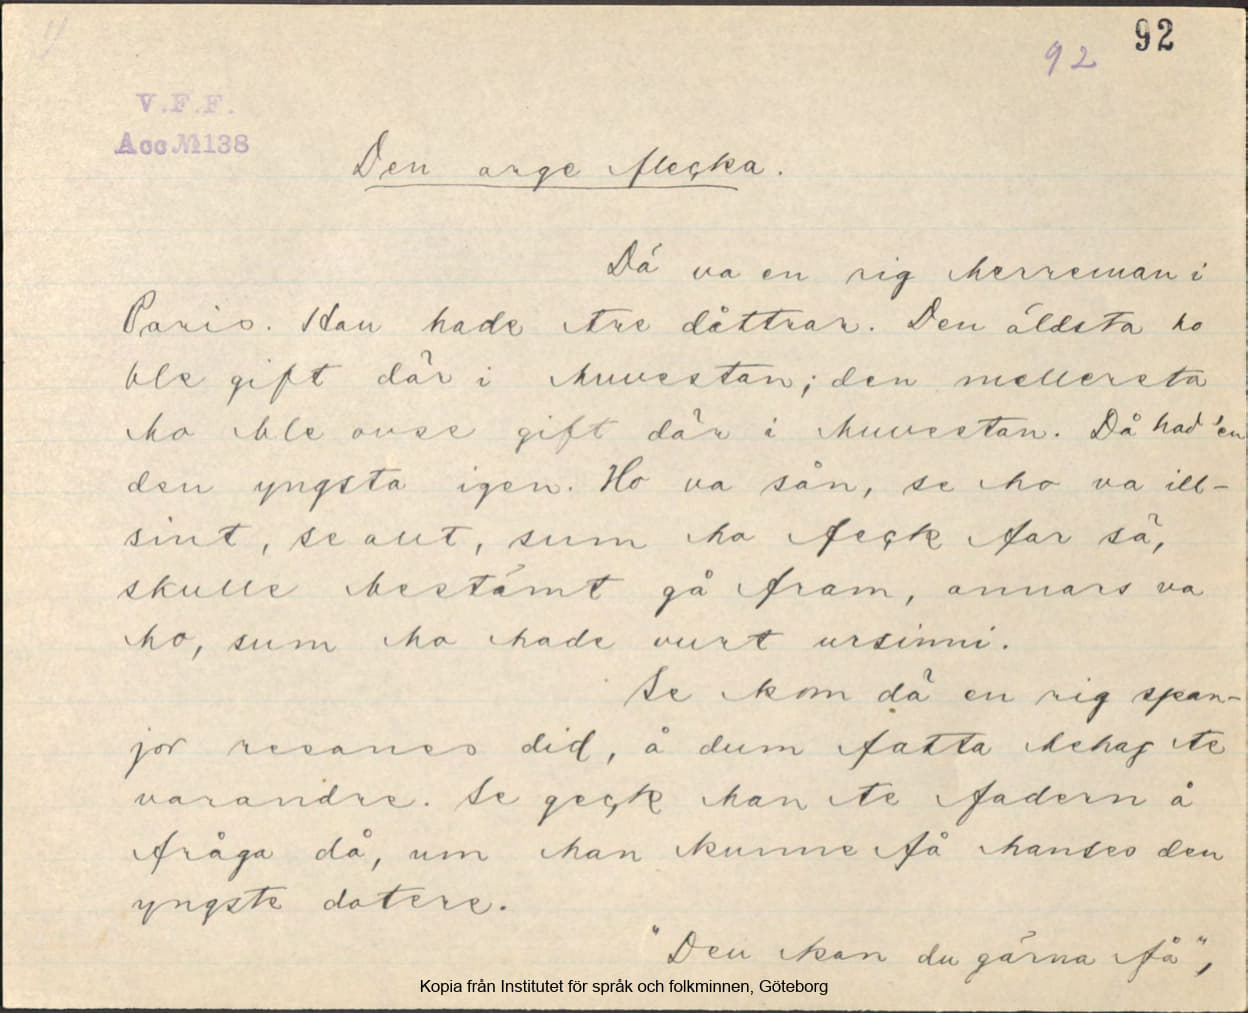 92
92
V.F.F.
Acc № 138
Den arge fleçka.
Dä va en rig herreman i
Paris. Han hade tre dåttrar. Den äldsta ho
ble gift där i huvestan; den mellersta
ho ble ovse gift där i huvestan. Då had 'en
den yngsta igen. Ho va sån, se ho va ill-
sint, se allt, sum ho feçk för sä,
skulle bestämt gå fram, annars va
ho, sum ho hade vurt ursinni.
Se kom dä en rig span-
jor resanes did, å dum fatta behag te
varandre. Se geçk han te fadern å
fråga då, um han kunne få hanses den
yngste datere.
"Den kan du gärna få",
Kopia från Institutet för språk och folkminnen, Göteborg